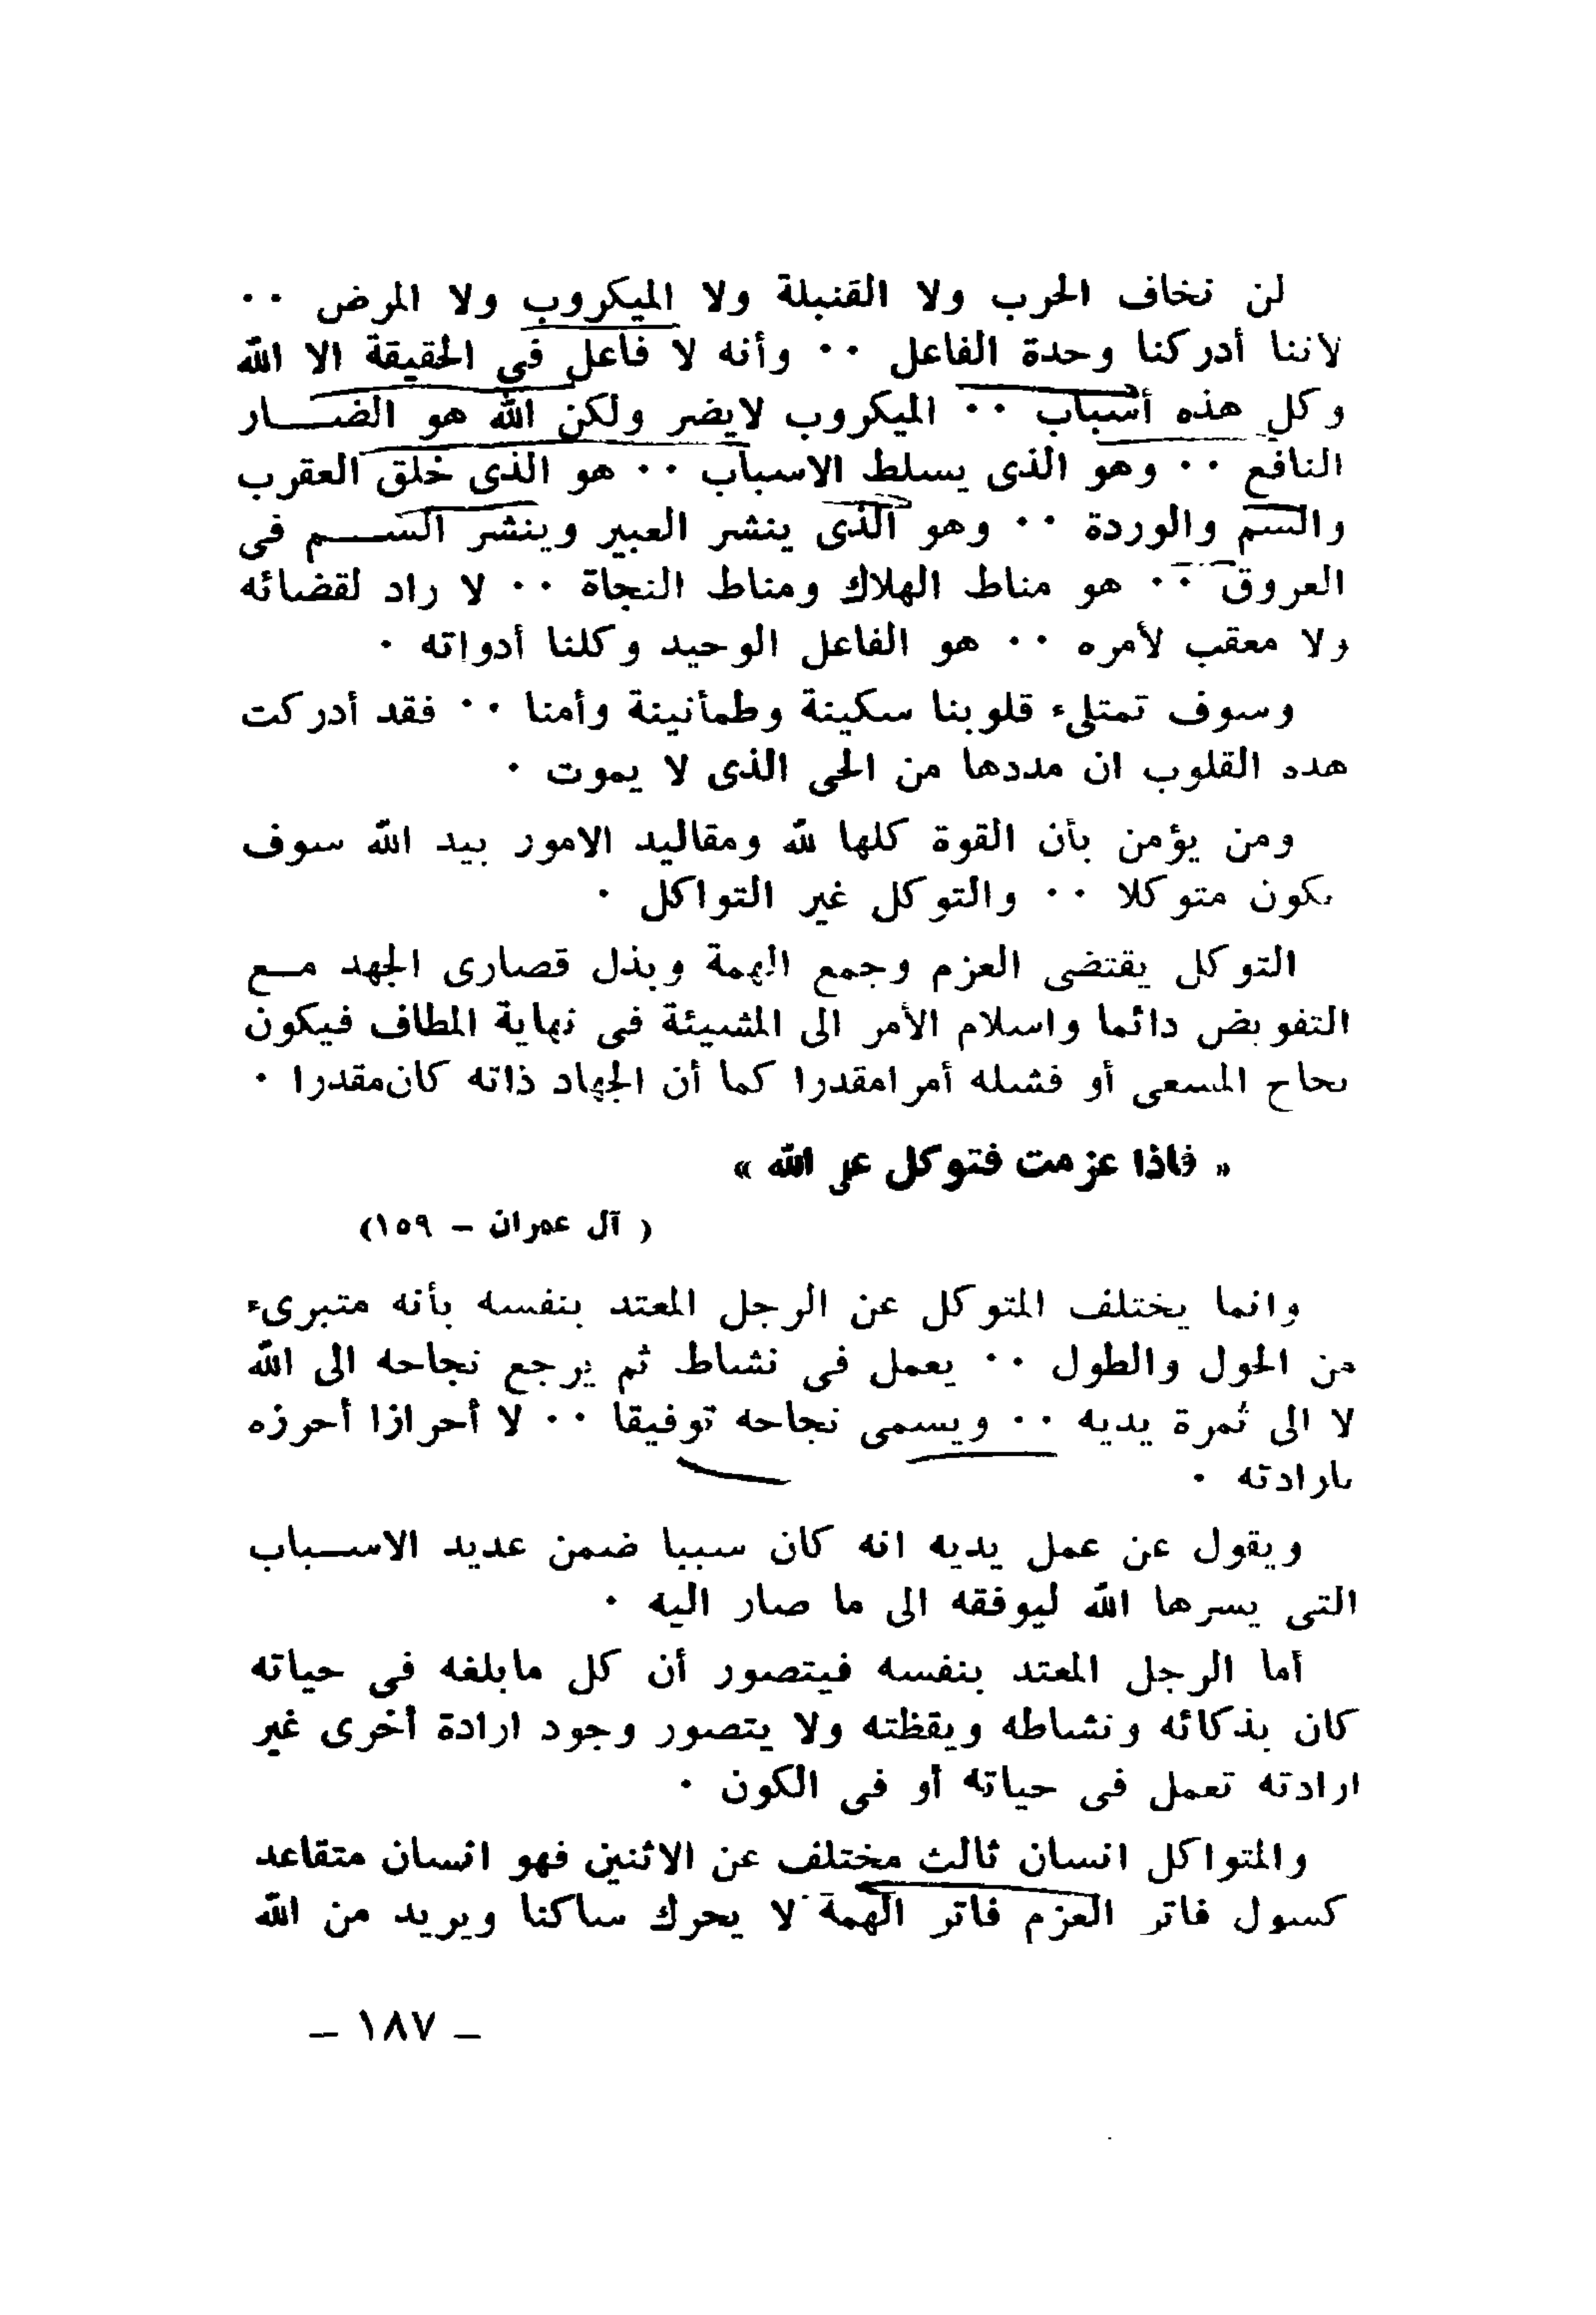 لن نخاف الحرب ولا القنبلة ولا الميكروب ولا المرض ٠٠
لاننا أدركنا وحدة الفاعل ٠٠ وأنه لا فاعل في الحقيقة الا الله
وكل هذه أسباب ٠٠ الميكروب لايضر ولكن الله هو الضـــار
النافع ٠٠ وهو الذى يسلط الاسباب ٠٠ هو الذى خلق العقرب
والسم والوردة ٠٠ وهو الذى ينشر العبير وينشر الســـم فى
العروق ٠٠ هو مناط الهلاك ومناط النجاة ٠٠ لا راد لقضائه
ولا معقب لأمره ٠٠ هو الفاعل الوحيد وكلنا أدواته ٠
وسوف تمتلىء قلوبنا سكينة وطمأنينة وأمنا ٠٠ فقد أدركت
هذه القلوب ان مددها من الحى الذى لا يموت ٠
ومن يؤمن بأن القوة كلها لله ومقاليد الامور بيد الله سوف
يكون متوكلا ٠٠ والتوكل غير التواكل ٠
التوكل يقتضى العزم وجمع الهمة وبذل قصارى الجهد مـع
التفويض دائما واسلام الأمر الى المشيئة فى نهاية المطاف فيكون
نجاح المسعى أو فشله أمرامقدرا كما أن الجهاد ذاته كان مقدرا ٠
« فاذا عزمت فتوكل على الله »
( آل عمران – ١٥٩)
وانما يختلف المتوكل عن الرجل المعتد بنفسه بأنه متبرىء
من الحول والطول ٠٠ يعمل فى نشاط ثم يرجع نجاحه الى الله
لا الى ثمرة يديه ٠٠ ويسمى نجاحه توفيقا ٠٠ لا أحرازا أحرزه
بارادته ٠
ويقول عن عمل يديه انه كان سببا ضمن عديد الاسـباب
التى يسرها الله ليوفقه الى ما صار اليه ٠
أما الرجل المعتد بنفسه فيتصور أن كل مابلغه فى حياته
كان بذكائه ونشاطه ويقظته ولا يتصور وجود ارادة أخرى غير
ارادته تعمل فى حياته أو فى الكون ٠
والمتواكل انسان ثالث مختلف عن الاثنين فهو انسان متقاعد
كسول فاتر العزم فاتر الهمة لا يحرك ساكنا ويريد من الله
– ١٨٧ –